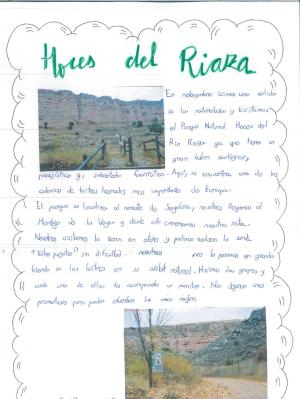 Hoces del Riaza
En noviembre hicimos una salida
a la naturaleza y visitamos
el Parque Natural Hoces del
Río Riaza ya que tiene un
gran valor ecológico,
paisajístico y, sobretodo faunístico. Aquí se encuentra una de las
colonias de buitres leonados más importantes de Europa.
El parque se localiza al noreste de Segovia, nosotros llegamos al
Montejo de la Vega y desde allí comenzamos nuestra ruta.
Nosotros visitamos la zona en otoño y pudimos realizar la senda
sin dificultad. nosotros nos lo pasamos en grande
viendo a los buitres en su hábitat natural. Hicimos dos grupos, y
cada uno de ellos lo acompañaba un monitor. Nos dejaron unos
prismáticos para poder observar las aves mejor.